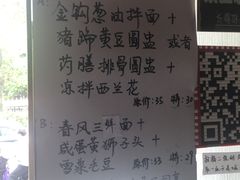 A:
金钩葱油拌面 +
猪蹄黄豆圆盅 或者
药膳排骨圆盅 +
凉拌西兰花
原价:35 特:30
B:
春风三鲜面 +
咸蛋黄狮子头 +
雪菜毛豆
原价:33 特:29